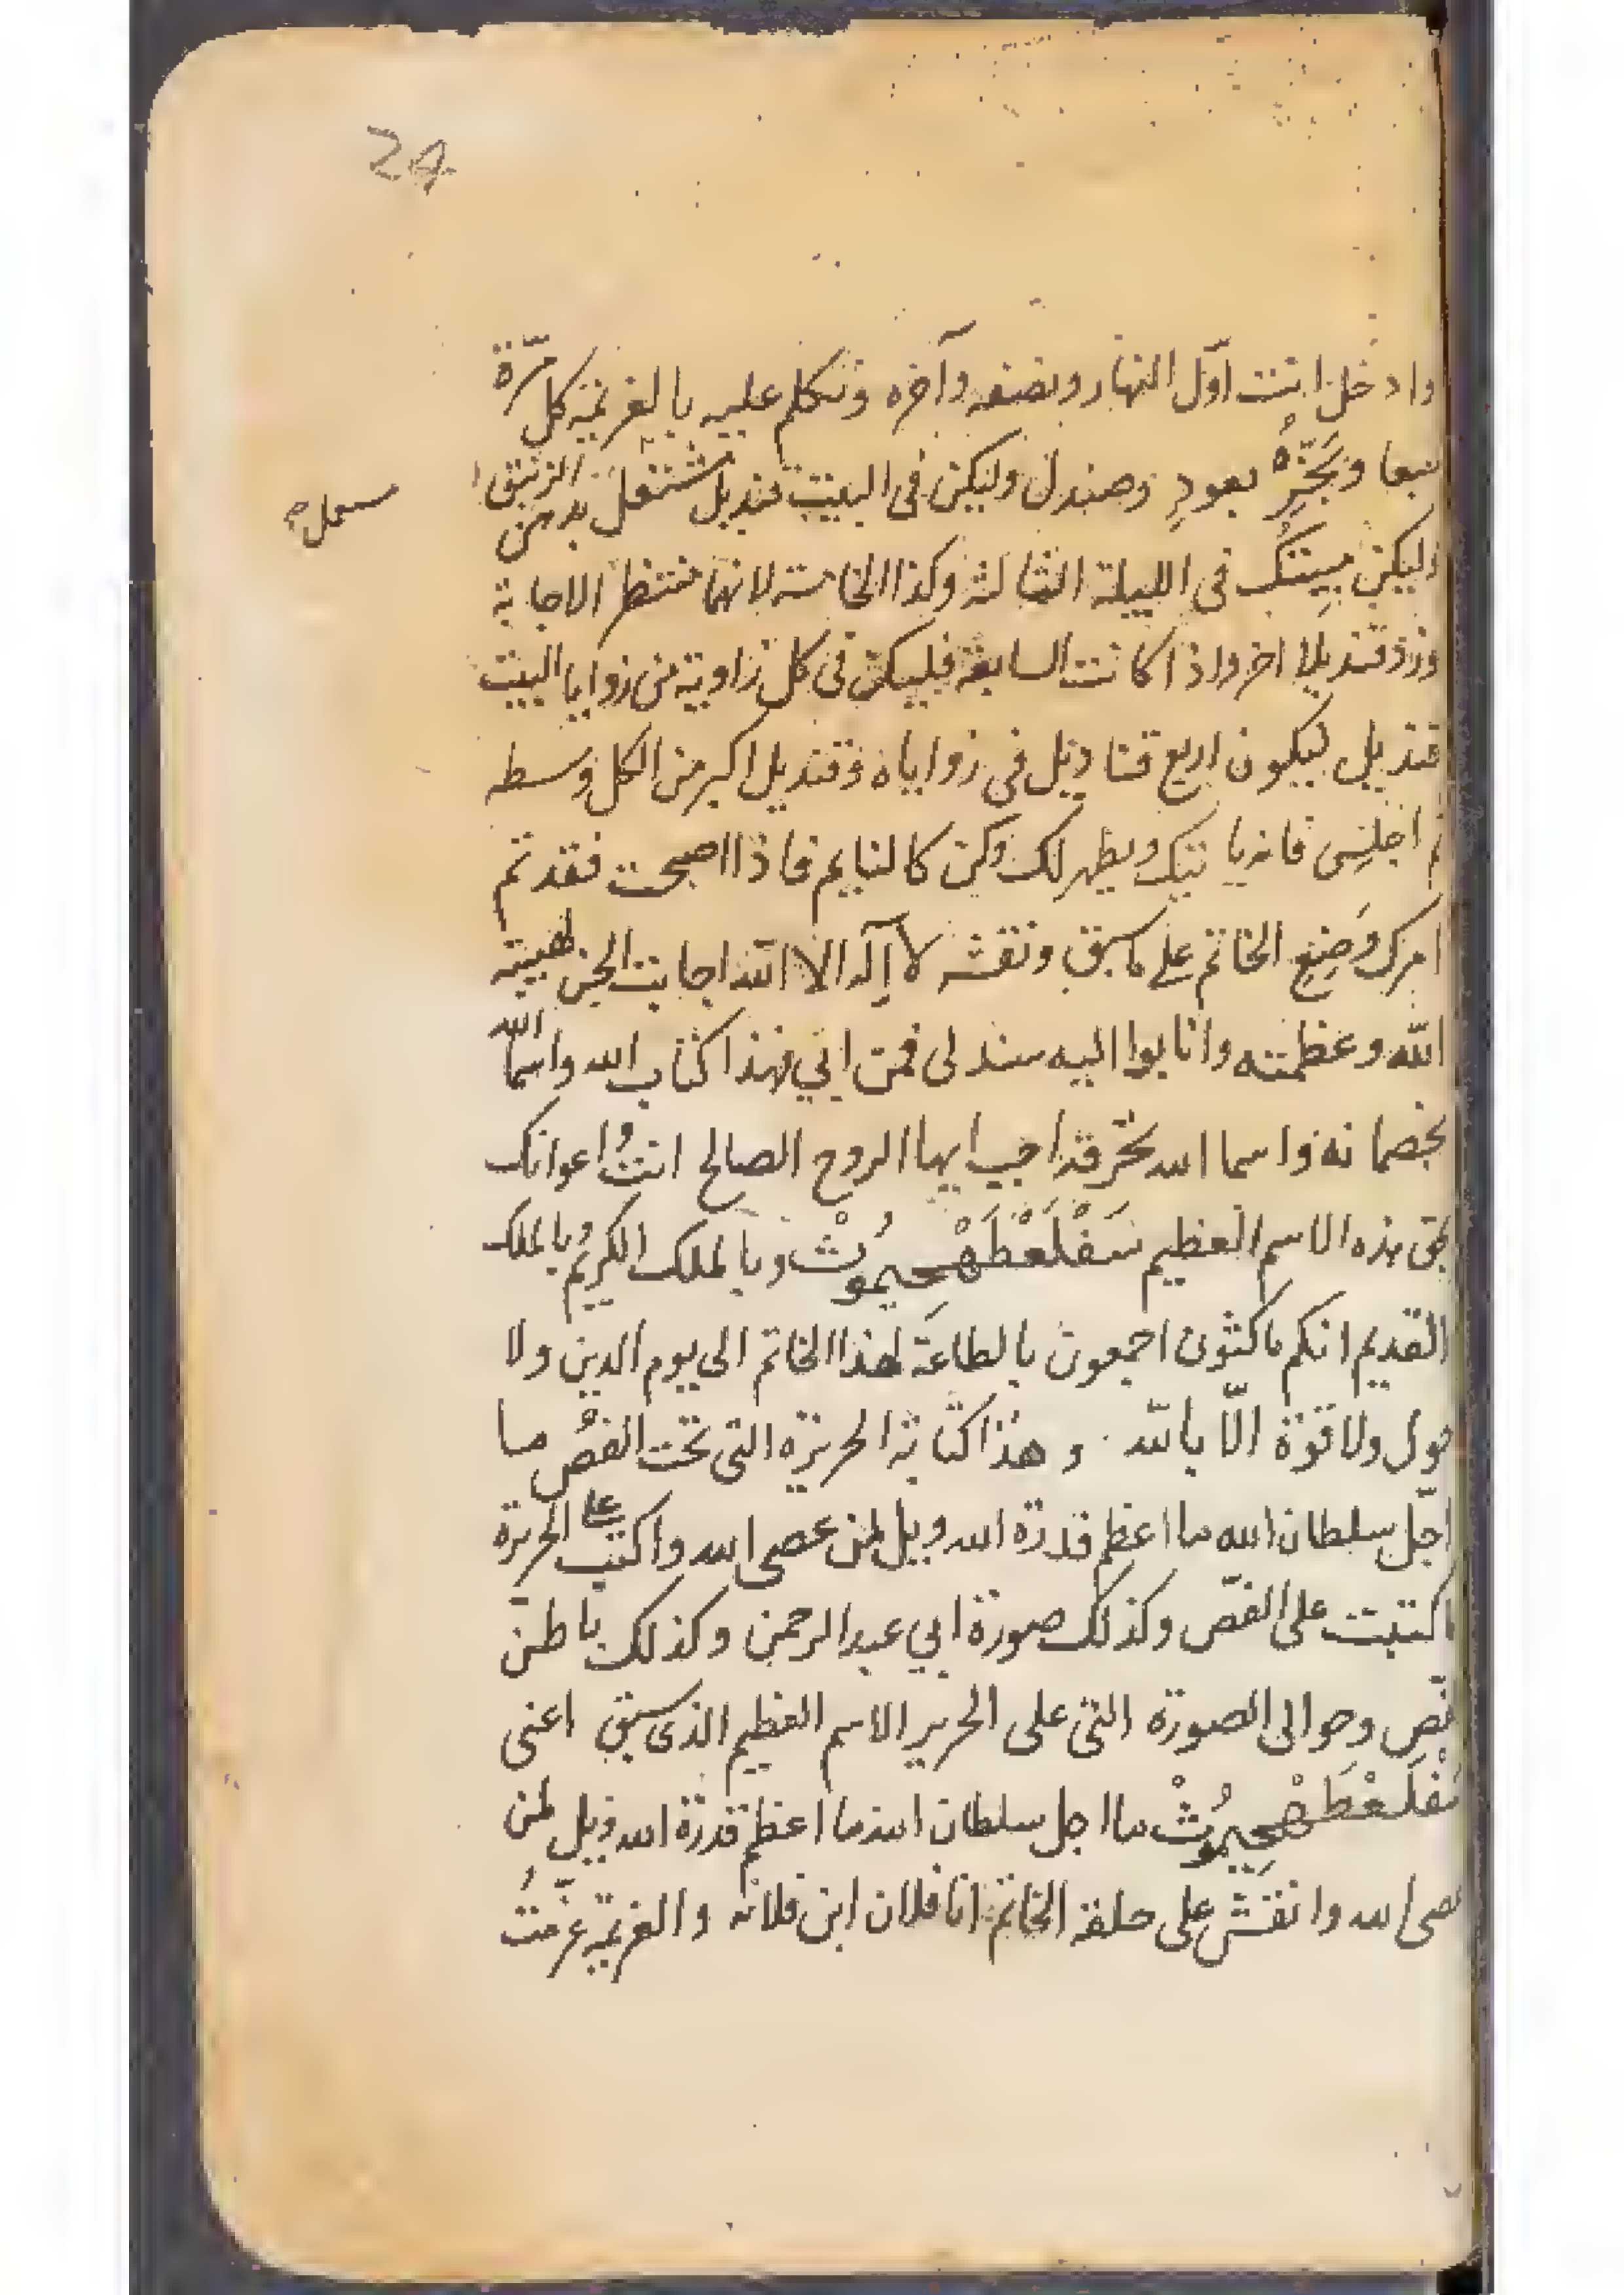 24
وادخل انت اوّل النهار ونصفه وآخره وتكلم عليه بالعزيمة كل مرّة
سبعا وبَخِّرْهُ بعودٍ وصندل وليكن في البيت قنديل مشتعل بدهن الزنبق
وليكن مبيتك في الليلة الثالثة وكذا الخامسة لانهما منتظر الاجابة
وزد قنديلا اخر واذا كانت السابعة فليكن في كل زاوية من زوايا البيت
قنديل ليكون اربع قناديل في زواياه وقنديل اكبر من الكل وسطه
ثم اجلس فانه ياتيك ويظهر لك وكن كالنايم فاذا اصبحت فقد تم
امرك وَضِعِ الخاتم على ما سبق ونقشه لا إله الا الله اجابت الجن لهيبة
الله وعظمته وانابوا اليه فمن ابي فهذا كتاب الله واسما الله
بخصمانه واسما الله تحرقه اجب ايها الروح الصالح انتَ وُاعوانك
بحق هذه الاسم العظيم سَفْلَعْطَهْجِيمُوثْ وبالملك الكريم وبالملك
القديم انكم ماكثون اجمعون بالطاعة لهذا الخاتم الى يوم الدين ولا
حول ولا قوّة الّا بالله . وهذا كتابة الحريرة التي تحت الفصّ ما
اجلّ سلطان الله ما اعظم قدرة الله ويل لمن عصى الله واكتب على الحريرة
ما كتبت على الفصّ وكذلك صورة ابي عبد الرحمن وكذلك باطن
الفصّ وحوالى الصورة التي على الحرير الاسم العظيم الذي سبق اعني
سَفْلَعْطَهْجِيمُوثْ ما اجل سلطان الله ما اعظم قدرة الله ويل لمن
عصى الله وانقش على حلقة الخاتم انا فلان ابن فلانه والعزيمة عزمتُ